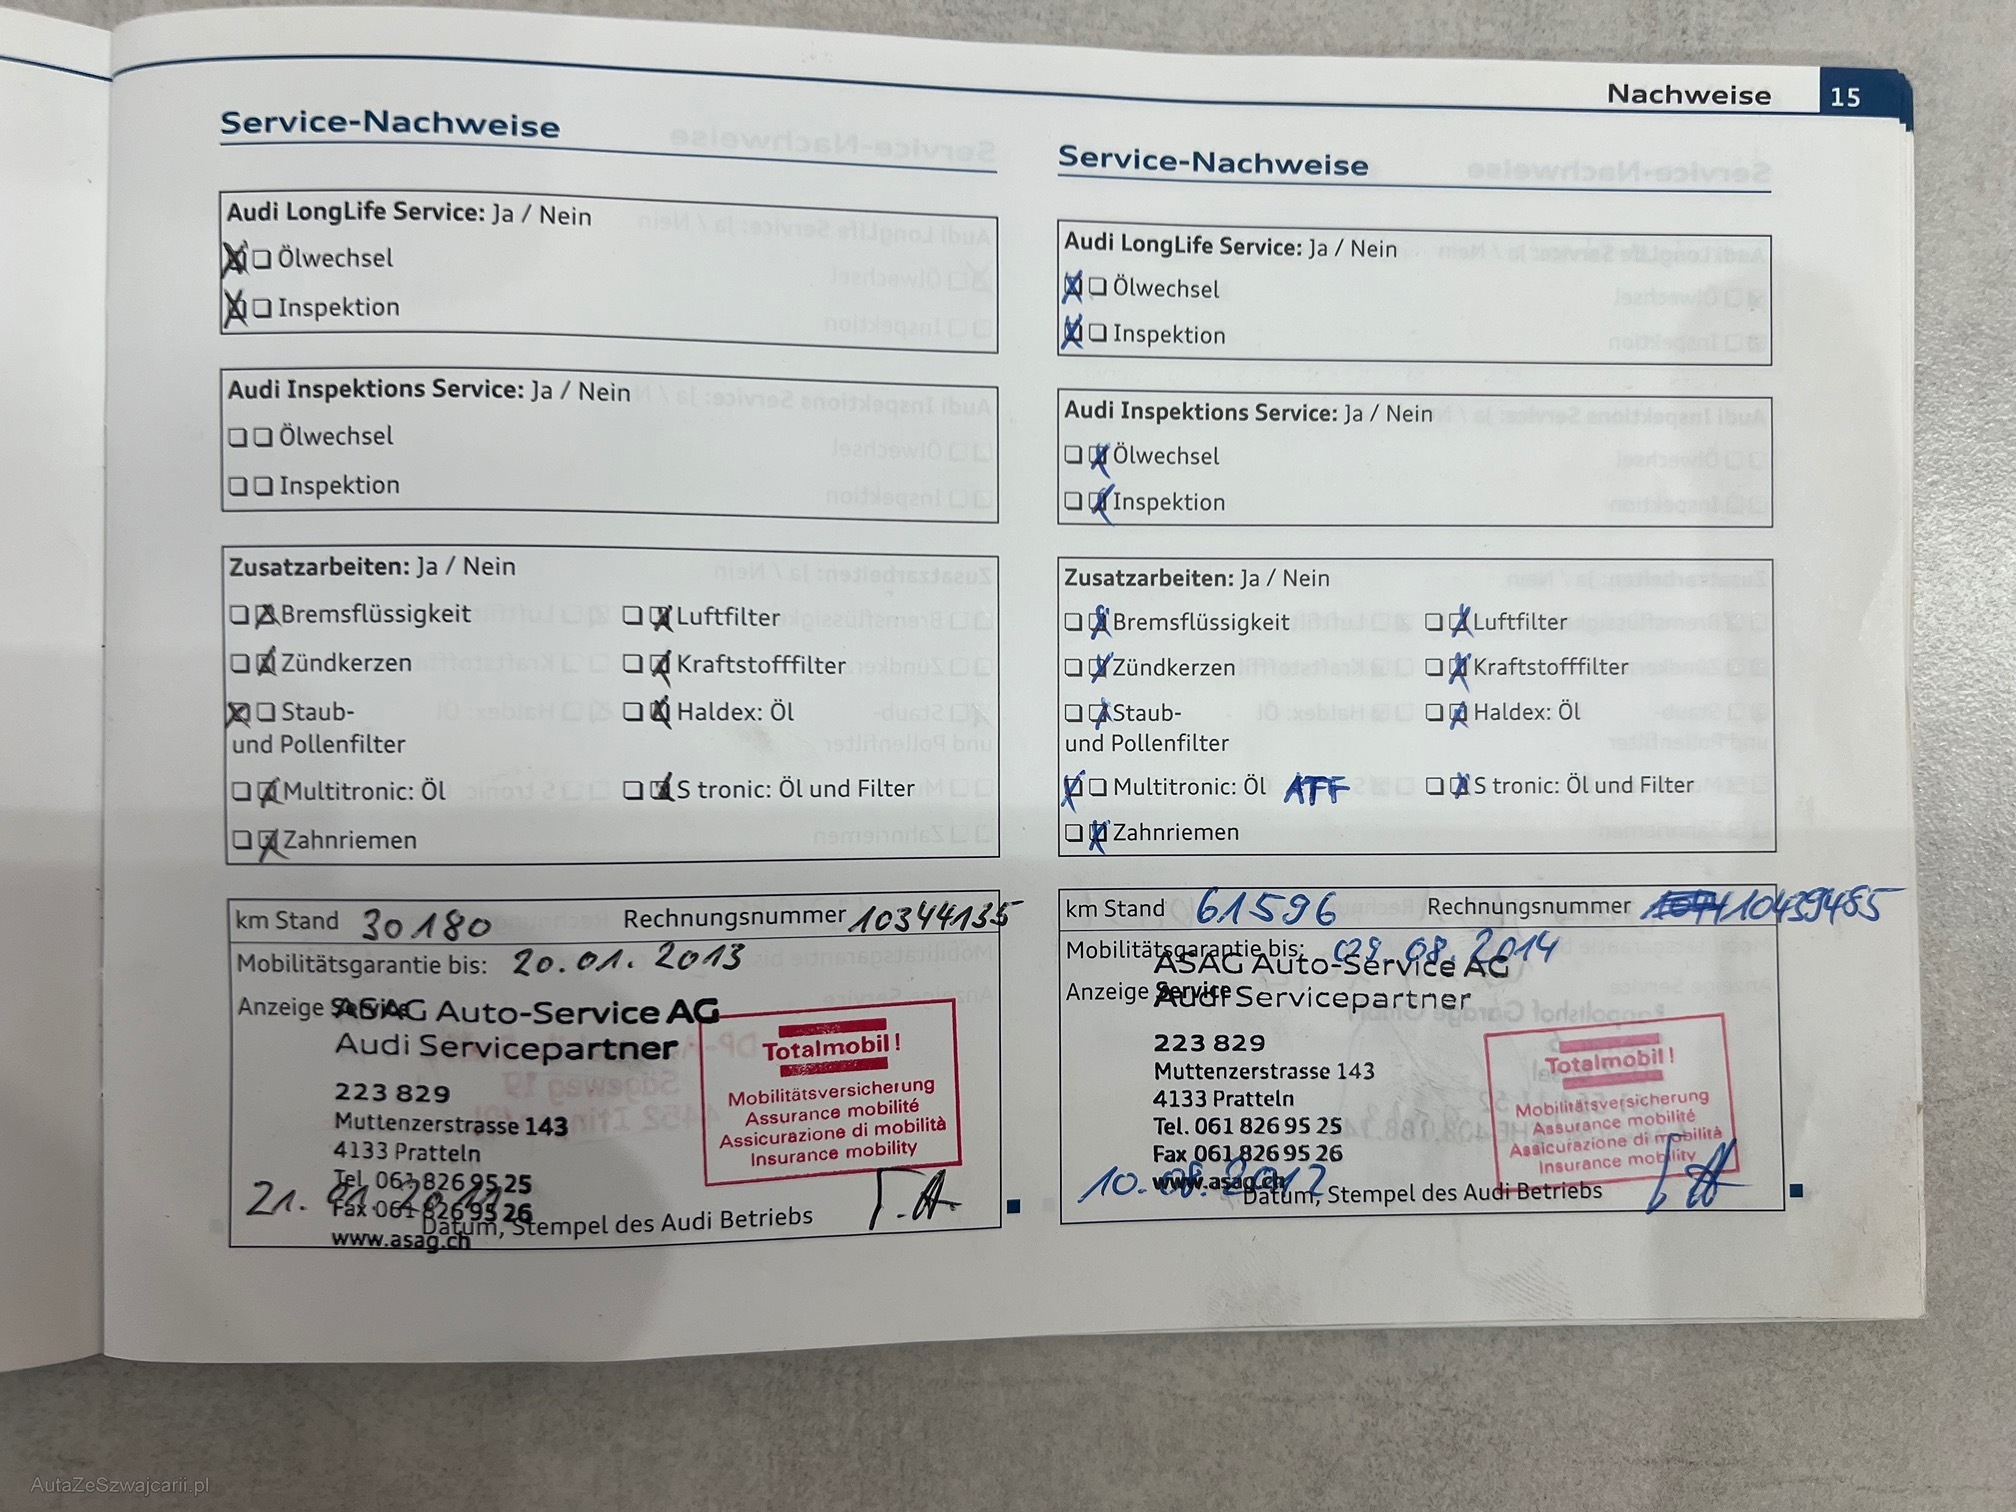 Nachweise 15
Service-Nachweise
Audi LongLife Service: Ja / Nein
Ölwechsel
Inspektion
Audi Inspektions Service: Ja / Nein
Ölwechsel
Inspektion
Zusatzarbeiten: Ja / Nein
Bremsflüssigkeit Luftfilter
Zündkerzen Kraftstofffilter
Staub- Haldex: Öl
und Pollenfilter
Multitronic: Öl S tronic: Öl und Filter
Zahnriemen
km Stand 30180 Rechnungsnummer 10344135
Mobilitätsgarantie bis: 20.01.2013
Anzeige Service
ASAG Auto-Service AG
Audi Servicepartner
223 829
Muttenzerstrasse 143
4133 Pratteln
Tel. 061 826 95 25
Fax 061 826 95 26
www.asag.ch
Totalmobil!
Mobilitätsversicherung
Assurance mobilité
Assicurazione di mobilità
Insurance mobility
21.
Datum, Stempel des Audi Betriebs
Service-Nachweise
Audi LongLife Service: Ja / Nein
Ölwechsel
Inspektion
Audi Inspektions Service: Ja / Nein
Ölwechsel
Inspektion
Zusatzarbeiten: Ja / Nein
Bremsflüssigkeit Luftfilter
Zündkerzen Kraftstofffilter
Staub- Haldex: Öl
und Pollenfilter
Multitronic: Öl ATF S tronic: Öl und Filter
Zahnriemen
km Stand 61596 Rechnungsnummer 10439465
Mobilitätsgarantie bis: 09.08.2014
Anzeige Service
ASAG Auto-Service AG
Audi Servicepartner
223 829
Muttenzerstrasse 143
4133 Pratteln
Tel. 061 826 95 25
Fax 061 826 95 26
www.asag.ch
Totalmobil!
Mobilitätsversicherung
Assurance mobilité
Assicurazione di mobilità
Insurance mobility
10.08.2012
Datum, Stempel des Audi Betriebs
AutaZeSzwajcarii.pl